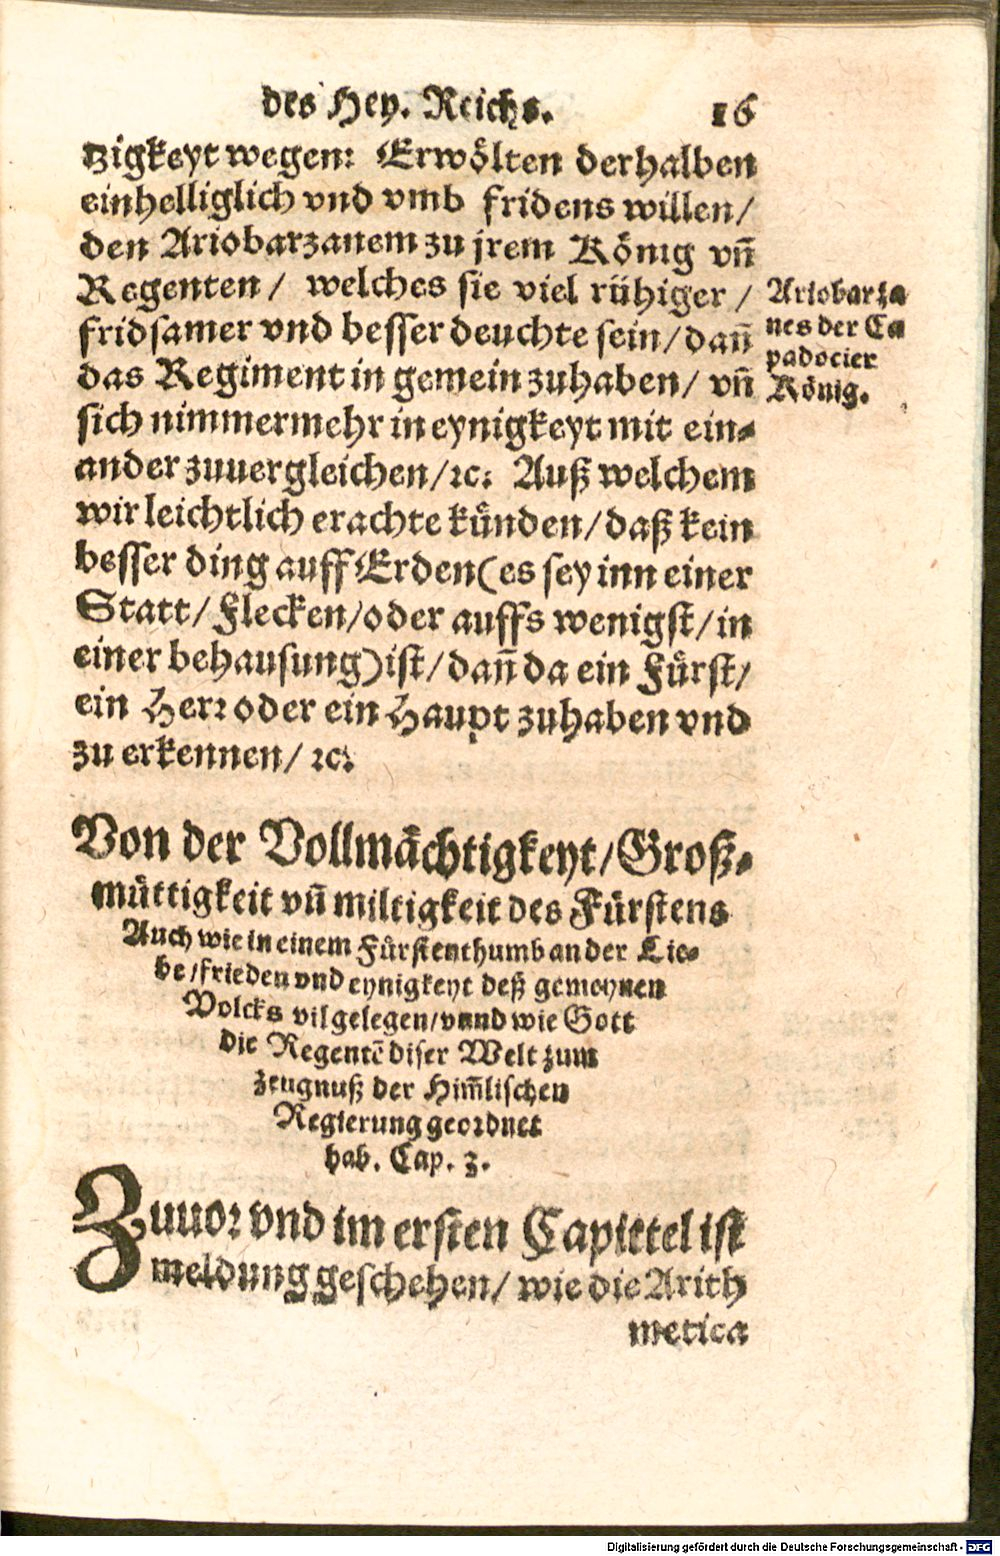 des Hey. Reichs. 16
tzigkeyt wegen: Erwölten derhalben
einhelliglich vnd vmb fridens willen/
den Ariobarzanem zu jrem König vn̄
Regenten/ welches sie viel rühiger/
fridsamer vnd besser deuchte sein/ dan̄
das Regiment in gemein zuhaben/ vn̄
sich nimmermehr in eynigkeyt mit ein⸗
ander zuuergleichen/ ꝛc: Auß welchem
wir leichtlich erachte künden/ daß kein
besser ding auff Erden (es sey inn einer
Statt/ Flecken/ oder auffs wenigst/ in
einer behausung) ist/ dan̄ da ein Fürst/
ein Herꝛ oder ein Haupt zuhaben vnd
zu erkennen/ ꝛc:
Ariobarza
nes der Ca
padocier
König.
Von der Vollmächtigkeyt/ Groß⸗
müttigkeit vn̄ miltigkeit des Fürstens
Auch wie in einem Fürstenthumb an der Lie⸗
be/ frieden vnd eynigkeyt deß gemeynen
Volcks vil gelegen/ vnnd wie Gott
die Regentē diser Welt zum
zeugnuß der Him̄lischen
Regierung geoꝛdnet
hab. Cap. 3.
Zuuoꝛ vnd im ersten Capittel ist
meldung geschehen/ wie die Arith
metica
Digitalisierung gefördert durch die Deutsche Forschungsgemeinschaft - DFG